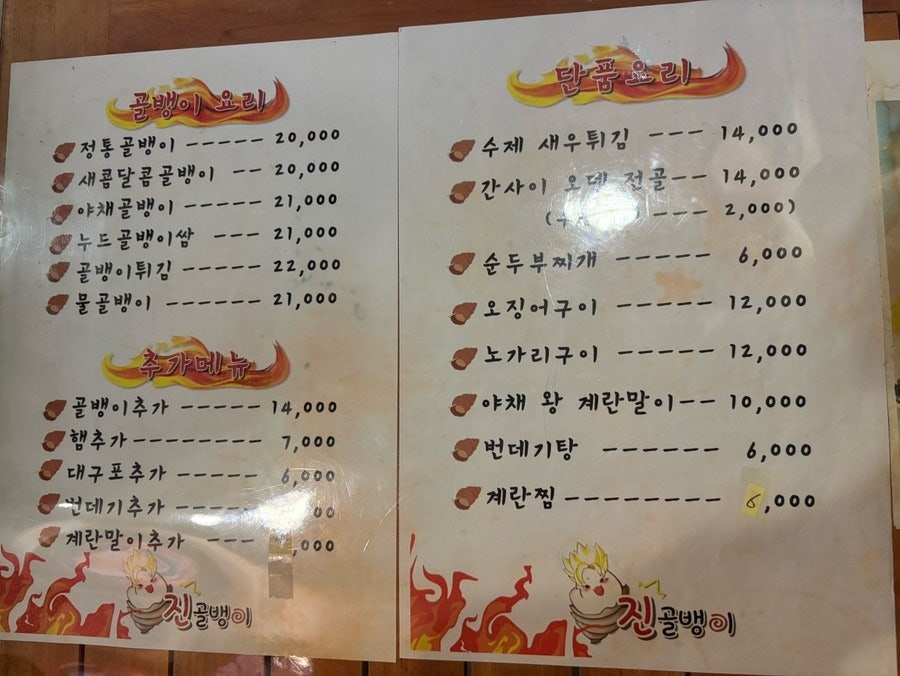 골뱅이 요리
정통골뱅이 ----- 20,000
새콤달콤골뱅이 -- 20,000
야채골뱅이 ----- 21,000
누드골뱅이쌈 --- 21,000
골뱅이튀김 ----- 22,000
물골뱅이 ------ 21,000
추가메뉴
골뱅이추가 ----- 14,000
햄추가-------- 7,000
대구포추가 ----- 6,000
번데기추가 -----
계란말이추가 ---
진골뱅이
단품요리
수제 새우튀김 --- 14,000
간사이 오뎅 전골-- 14,000
---- 2,000)
순두부찌개 ----- 6,000
오징어구이 ----- 12,000
노가리구이 ----- 12,000
야채 왕 계란말이-- 10,000
번데기탕 ------ 6,000
계란찜--------
진골뱅이